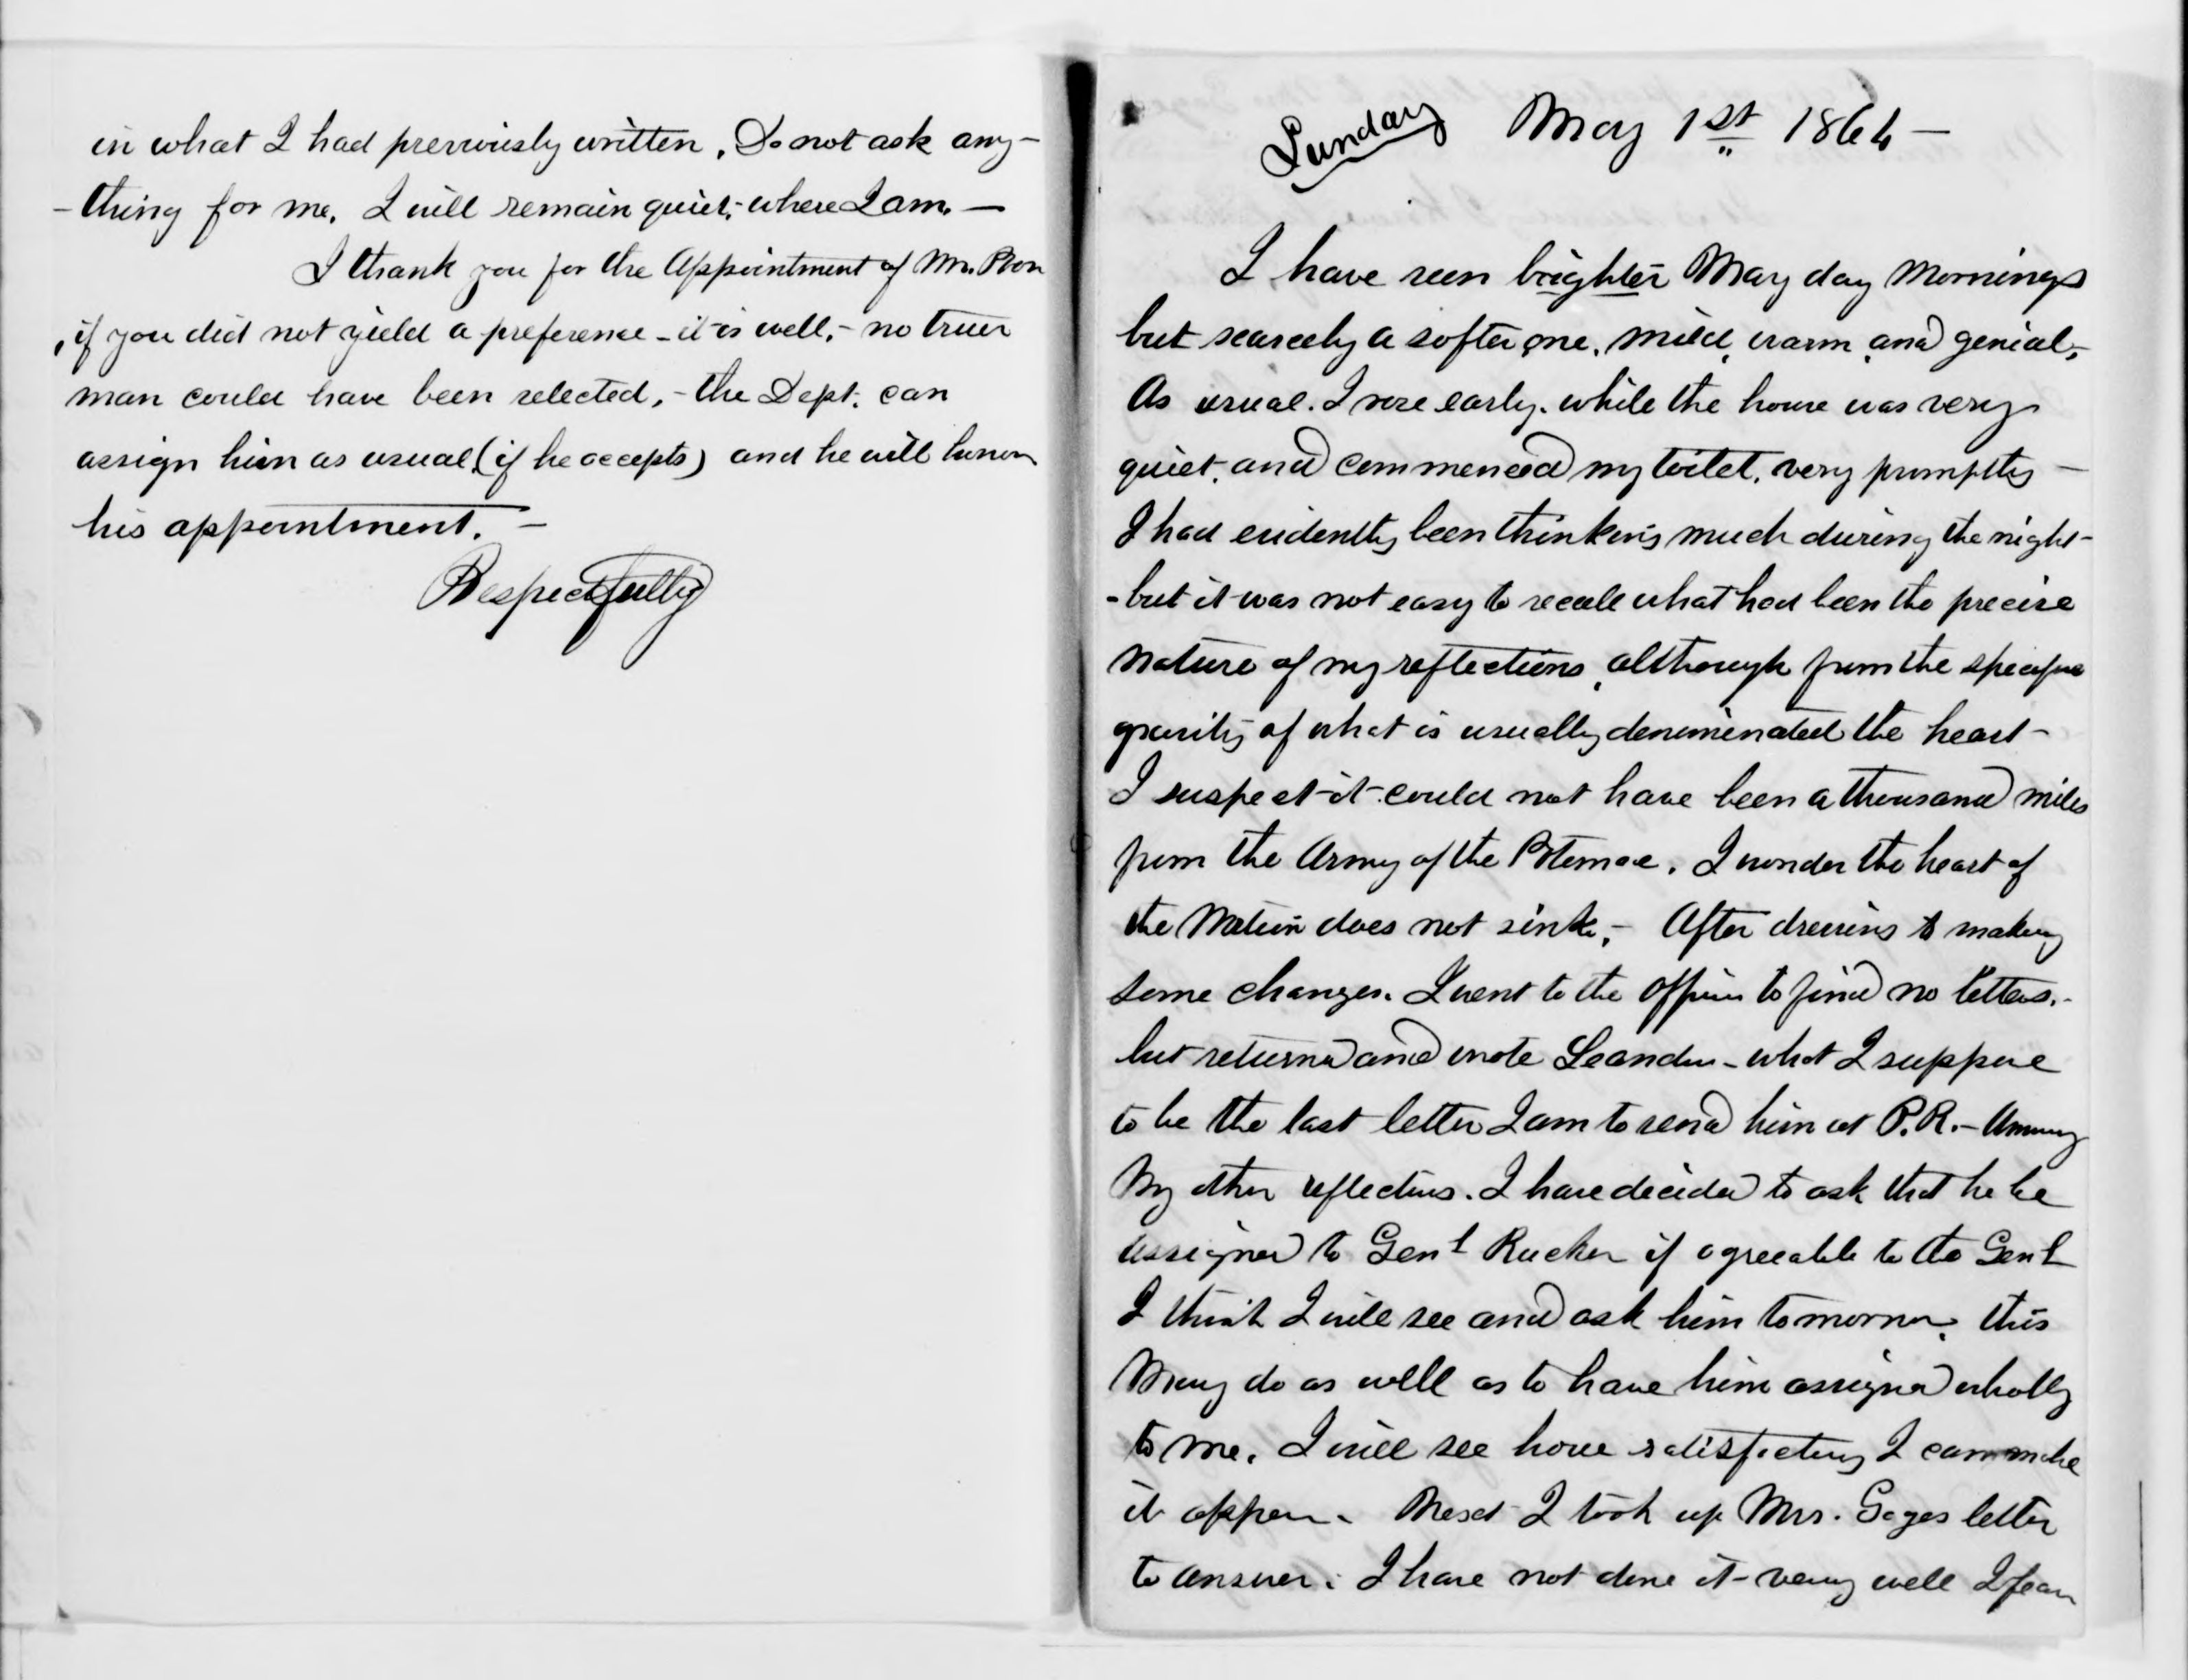 in what I had previously written. Do not ask any-
-thing for me, I will remain quiet, - where I am. —
I thank you for the Appointment of Mr.
, if you did not yield a preference - it is well, - no truer
man could have been selected, - the Dept. can
assign him as usual (if he accepts) and he will honor
his appointment. —
Respectfully
Sunday May 1st 1864 —
I have seen brighter May day Mornings
but scarcely a softer one, mild, warm, and genial, -
As usual. I rose early. while the house was very
quiet, and commenced my toilet, very promptly —
I had evidently been thinking much during the night -
- but it was not easy to recall what had been the precise
nature of my reflections, although from the specific
gravity of what is usually denominated the heart -
I suspect it could not have been a thousand miles
from the Army of the Potomac. I wonder the heart of
the Nation does not sink, - After dressing & making
some changes. I went to the office to find no letters. -
but returned and wrote Leander - what I suppose
to be the last letter I am to send him at P.R. - Among
My other reflections. I have decided to ask that he be
assigned to Genl Rucker if agreeable to the Genl
I think I will see and ask him tomorrow. this
May do as well as to have him assigned wholly
to me. I will see how satisfactory I can make
it appear. Next I took up Mrs. Gages letter
to answer. I have not done it very well I fear